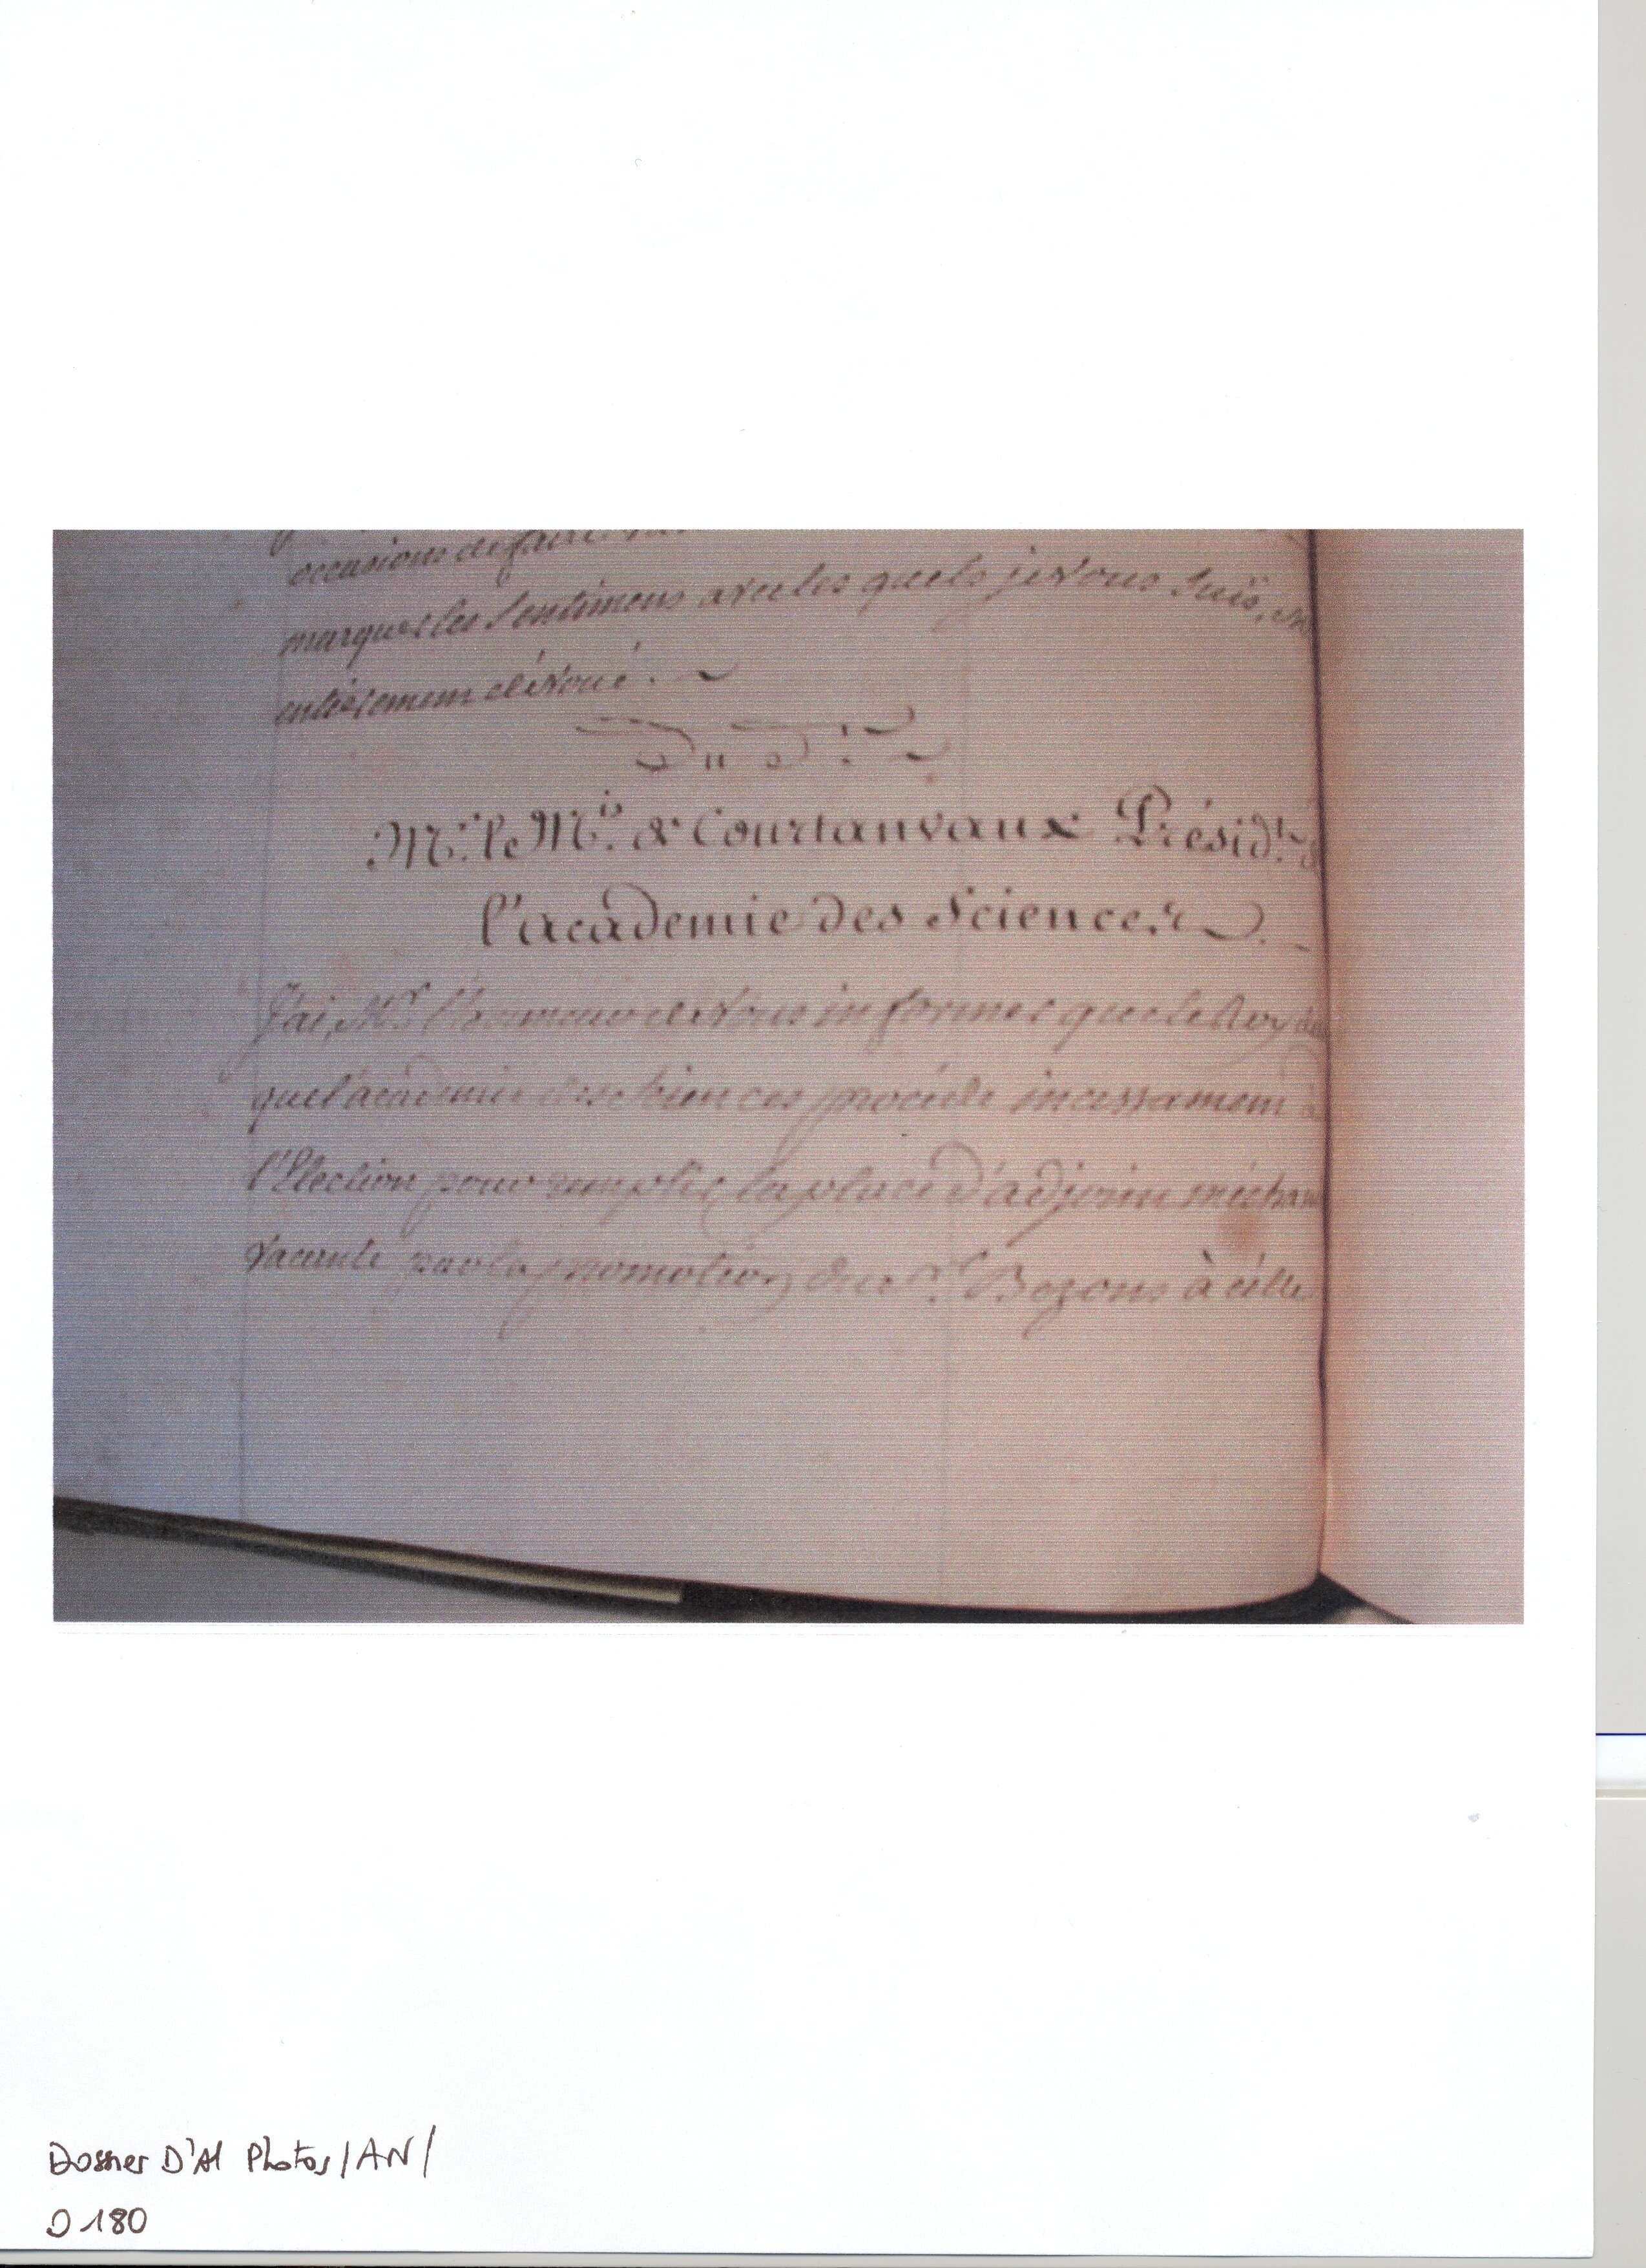 occasions de faire
marquer les sentimens avec les quels je vous suis,
entierement dévoué.
Du d.t
M.r le M.is de Courtanvaux Présid.t
l'academie des Sciences.
J'ai, M.r l'honneur de vous informer que le Roy
que l'academie des Sciences procéde incessamment
l'Election pour remplir la place d'adjoint méchan
Vacante par la promotion du S.r Bezout à célle
Dossier D'Al Photos/AN/
D 180